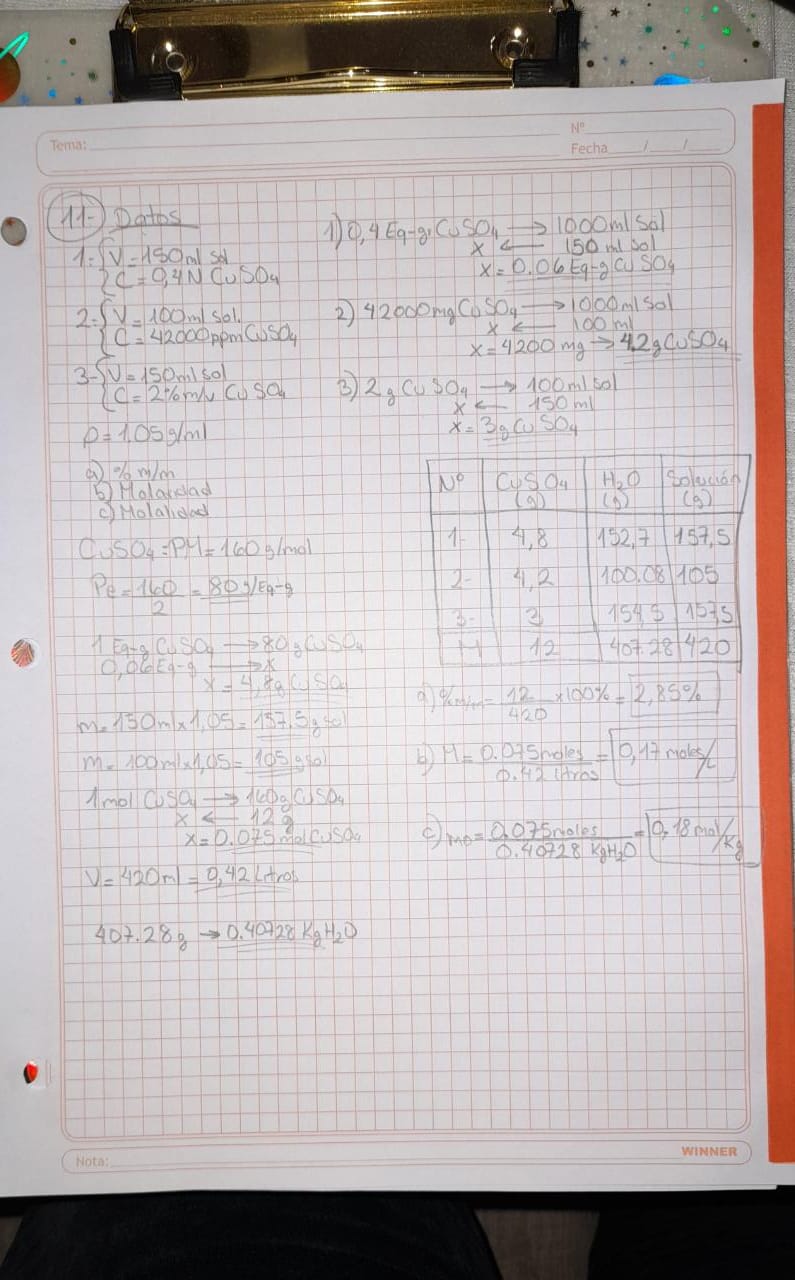 Tema:
Nº
Fecha / /
11- Datos
1- V=150ml sol
C=0,4N CuSO4
2- V=100ml sol.
C=42000ppm CuSO4
3- V=150ml sol
C=2%m/v CuSO4
ρ=1,05g/ml
a) %m/m
b) Molaridad
c) Molalidad
CuSO4=PM=160g/mol
Pe=160/2=80g/Eq-g
1 Eq-g CuSO4 → 80g CuSO4
0,06Eq-g → x
x=4,8g CuSO4
m=150ml x 1,05=157,5g sol
m=100ml x 1,05=105g sol
1mol CuSO4 → 160g CuSO4
x ← 12g
x=0.075mol CuSO4
V=420ml=0,42 Litros
407.28g → 0.40728 Kg H2O
1) 0,4 Eq-g CuSO4 → 1000ml sol
x ← 150 ml sol
x=0.06 Eq-g CuSO4
2) 42000mg CuSO4 → 1000ml sol
x ← 100 ml
x=4200 mg → 4,2g CuSO4
3) 2g CuSO4 → 100ml sol
x ← 150 ml
x=3g CuSO4
Nº CuSO4 (g) H2O (g) Solución (g)
1- 4,8 152,7 157,5
2- 4,2 100.08 105
3- 3 154,5 157,5
M 12 407.28 420
a) %m/m=12/420 x100%=2,85%
b) M=0.075moles/0.42 Litros=0,17 moles/L
c) mo=0,075moles/0.40728 KgH2O=0,18 mol/Kg
Nota:
WINNER